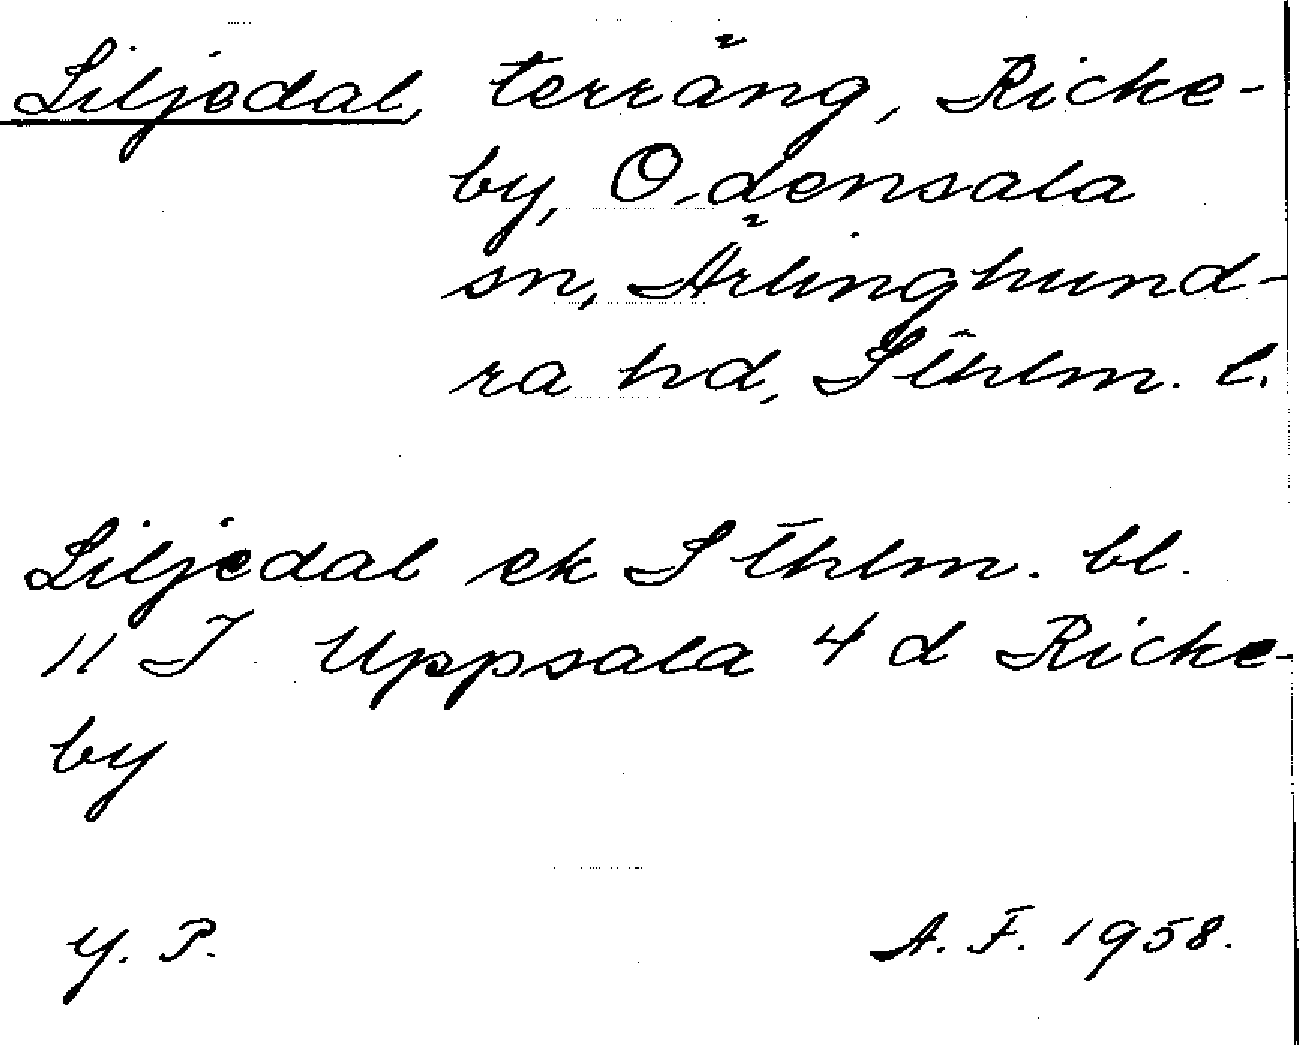 Liljedal, terräng, Ricke-
by, Odensala
sn, Ärlinghund-
ra hd, Sthlm. l.
Liljedal ek Sthlm. bl.
11 I Uppsala 4 d Ricke-
by
y. P.
A. F. 1958.